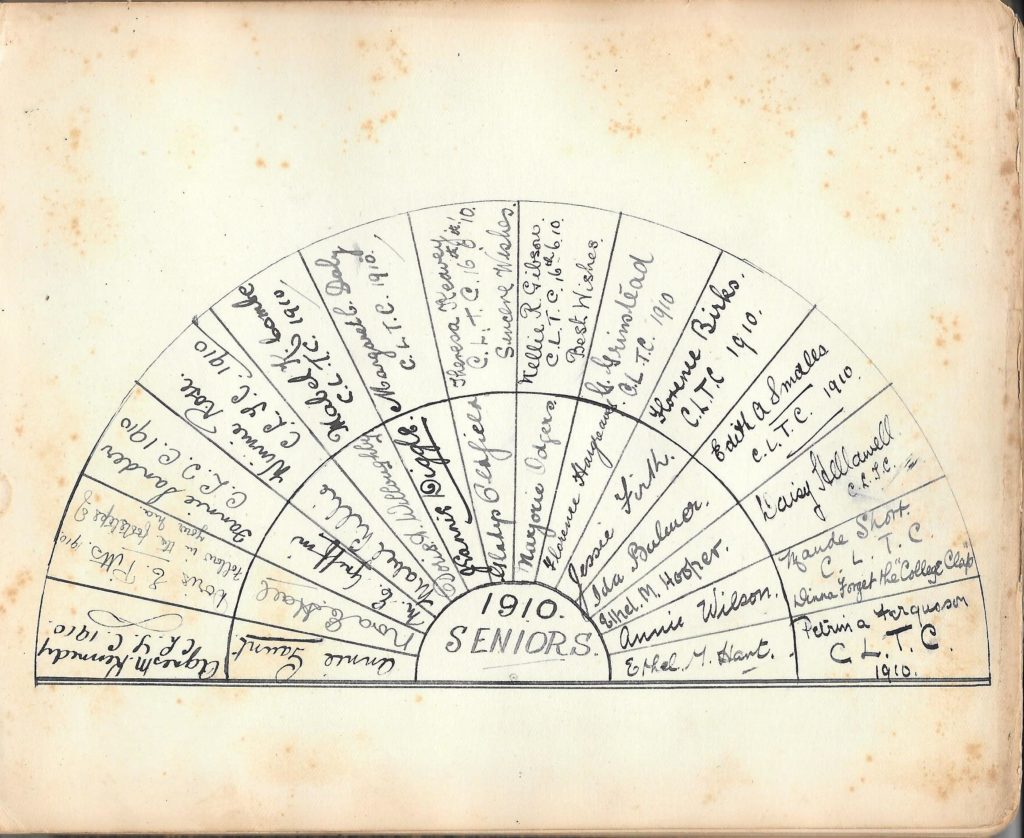 Agnes M Kennedy
C.L.T.C. 1910.
Doris E. Pitts. 1910
Follow in the footsteps of
your
Fannie Sander
C. L. T. C. 1910
Winnie Rose.
C. L. T. C. 1910
Mabel K. Combe
C. L. T.C. 1910.
Margaret C. Daly
C. L. T. C. 1910.
Theresa Keavey
C. L. T. C. 16th 6th 10.
Sincere Wishes.
Nellie R. Gibson.
C. L. T. C. 16th 6. 10.
Best Wishes.
G. Grinstead
C.L. T.C. 1910
Florence Birks.
C.L.T.C 1910.
Edith A Smales
C. L. T. C. 1910
Daisy Hellawell.
C. L. T. C.
Maude Short.
C. L. T. C
Dinna Forget the "College Clap"
Petrina Ferguson
C. L. T. C.
1910.
Annie
Gaunt
Nora E. Hall
M. E. Griffin
Mabel Willis
Doris G. Willoughby
Fannie Diggle.
Gladys Peafield
Marjorie Odgers.
Florence Hargreaves
Jessie Firth.
Ida Bulmer.
Ethel. M. Hooper.
Annie Wilson.
Ethel. M. Hant.
1910.
SENIORS.